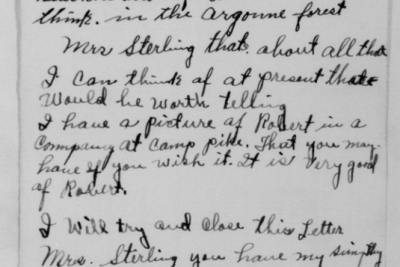 think. in the argonne forest
Mrs Sterling that. about all that
I can think of at present that
Would be worth telling
I have a picture of Robert in a
Company at Camp pike. That you may.
have if you wish it. It is very good
of Robert.
I Will try and Close this Letter
Mrs. Sterling you have my simpthy